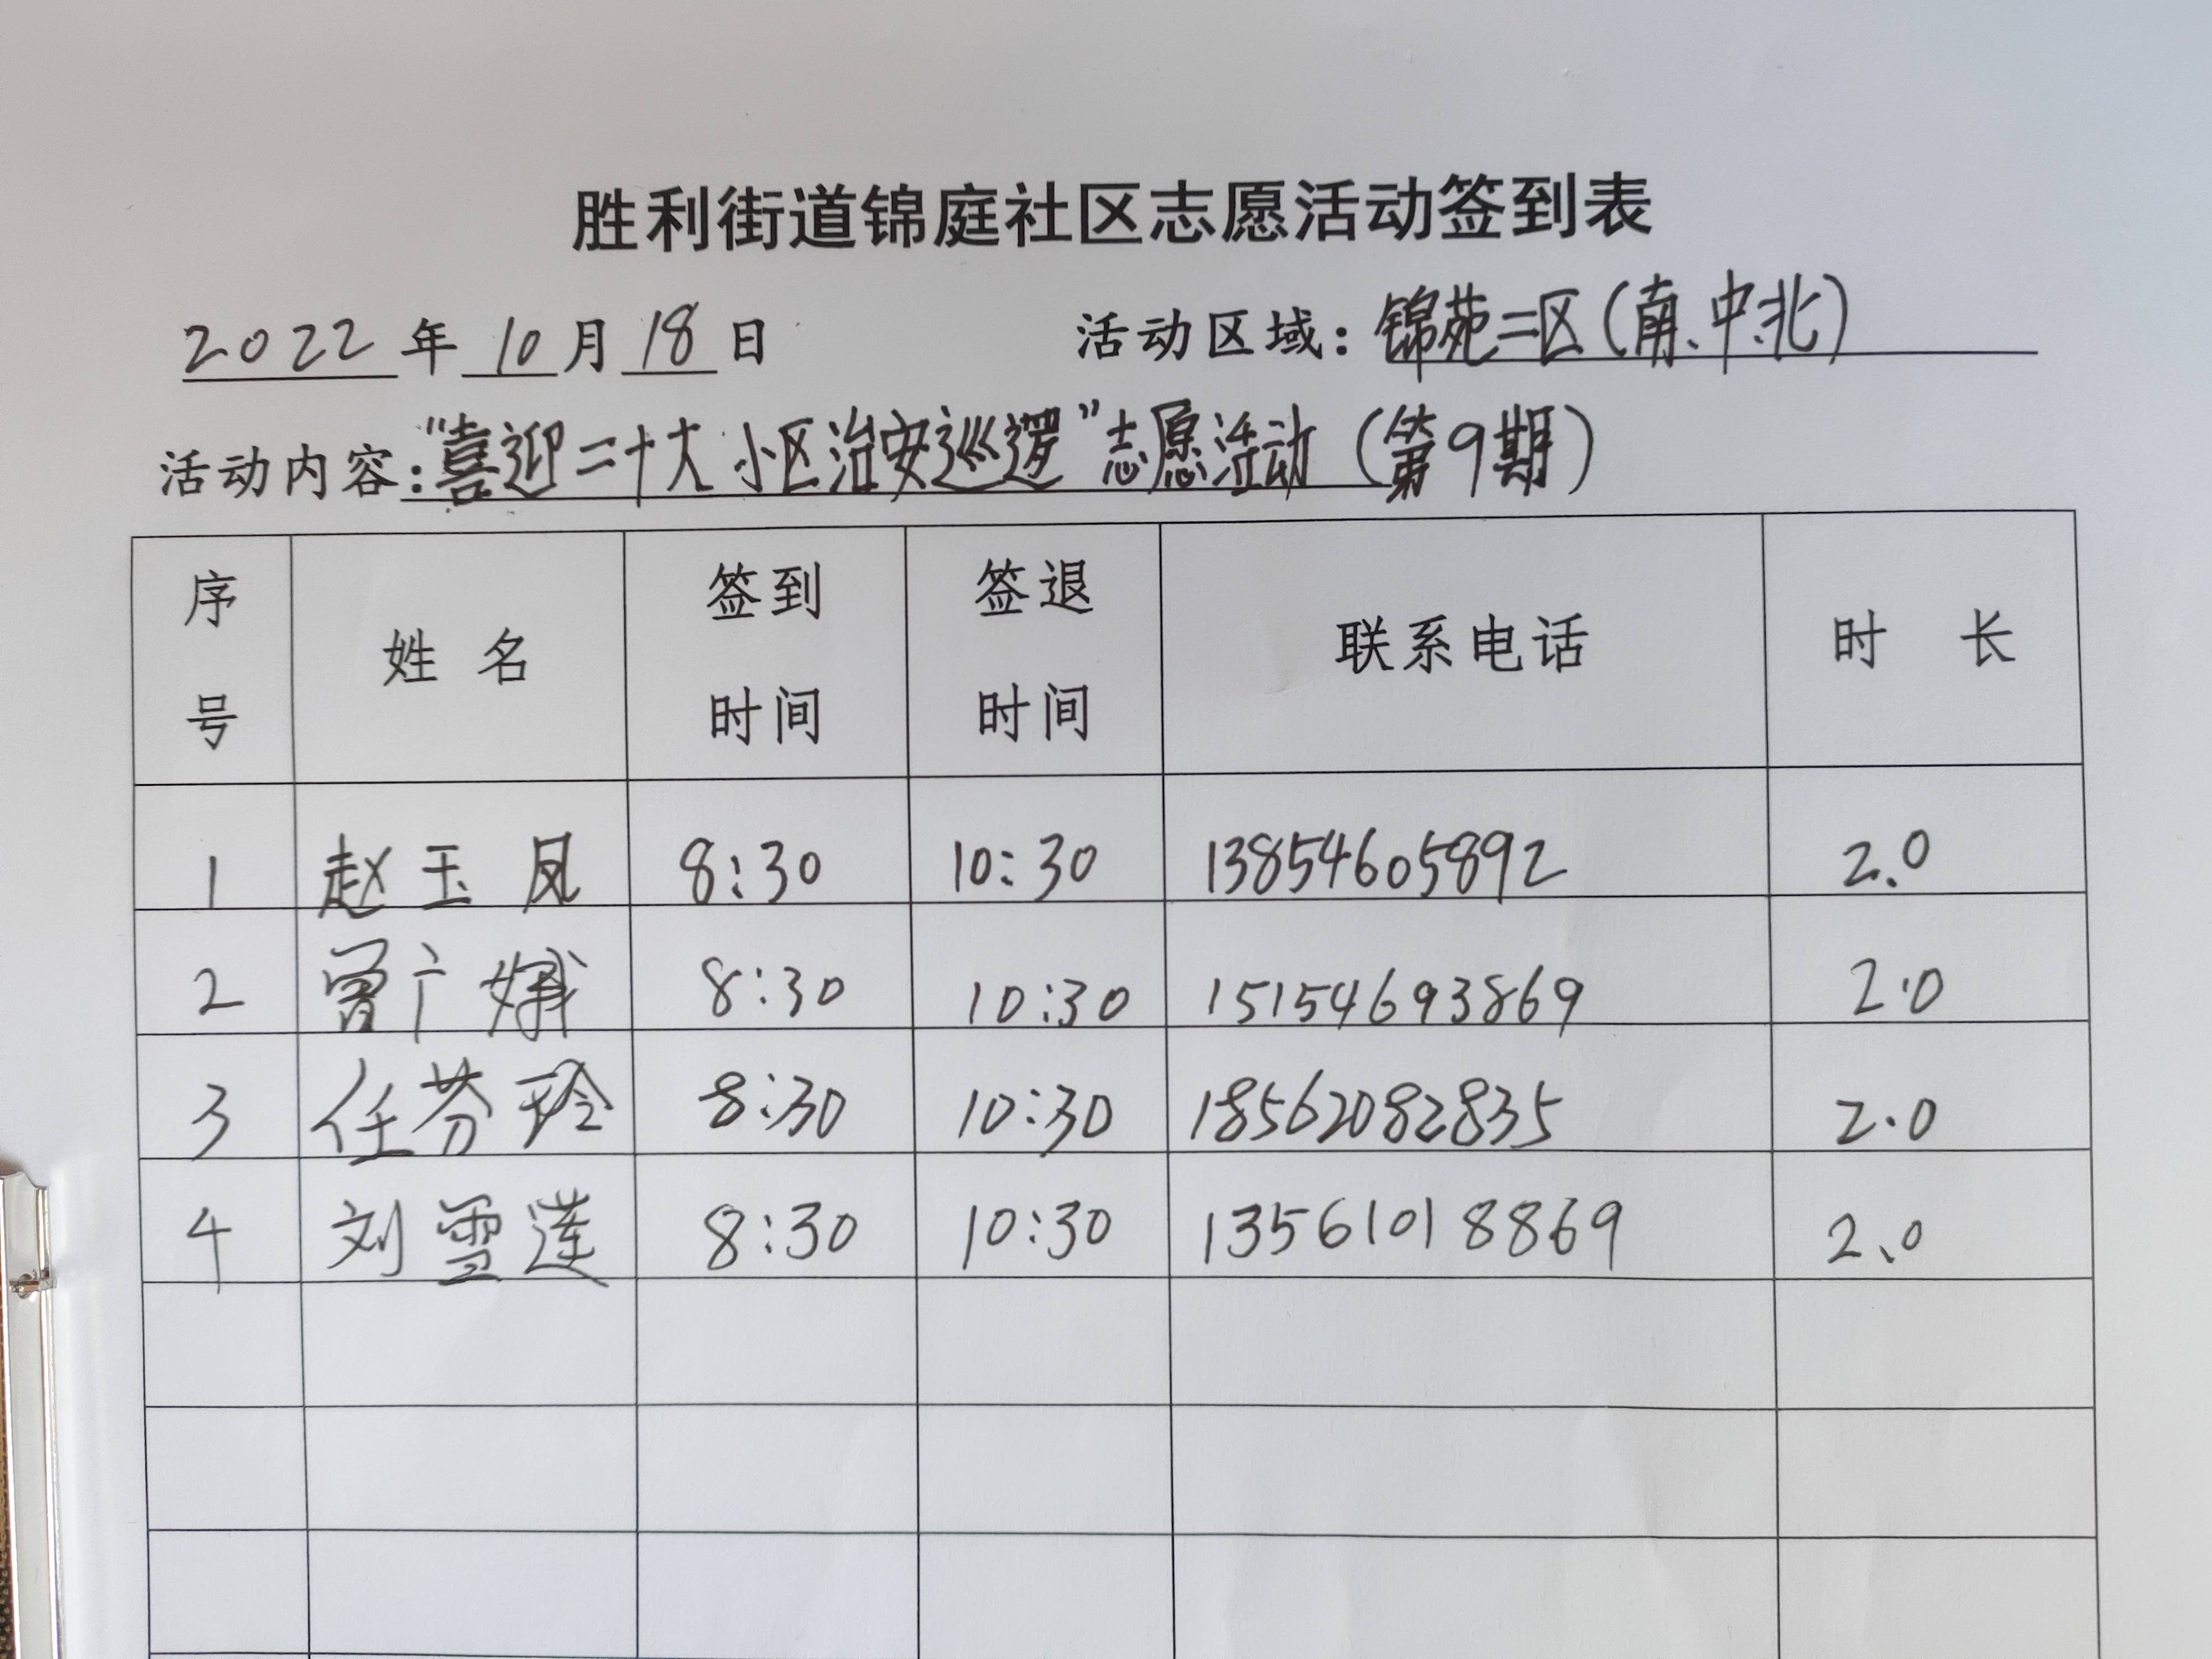 胜利街道锦庭社区志愿活动签到表
2022 年 10 月 18 日 活动区域：锦苑二区（南、中、北）
活动内容：“喜迎二十大 小区治安巡逻”志愿活动（第9期）
序号 姓名 签到时间 签退时间 联系电话 时长
1 赵玉凤 8:30 10:30 13854605892 2.0
2 曾广娥 8:30 10:30 15154693869 2.0
3 任芬玲 8:30 10:30 18562082835 2.0
4 刘雪莲 8:30 10:30 13561018869 2.0